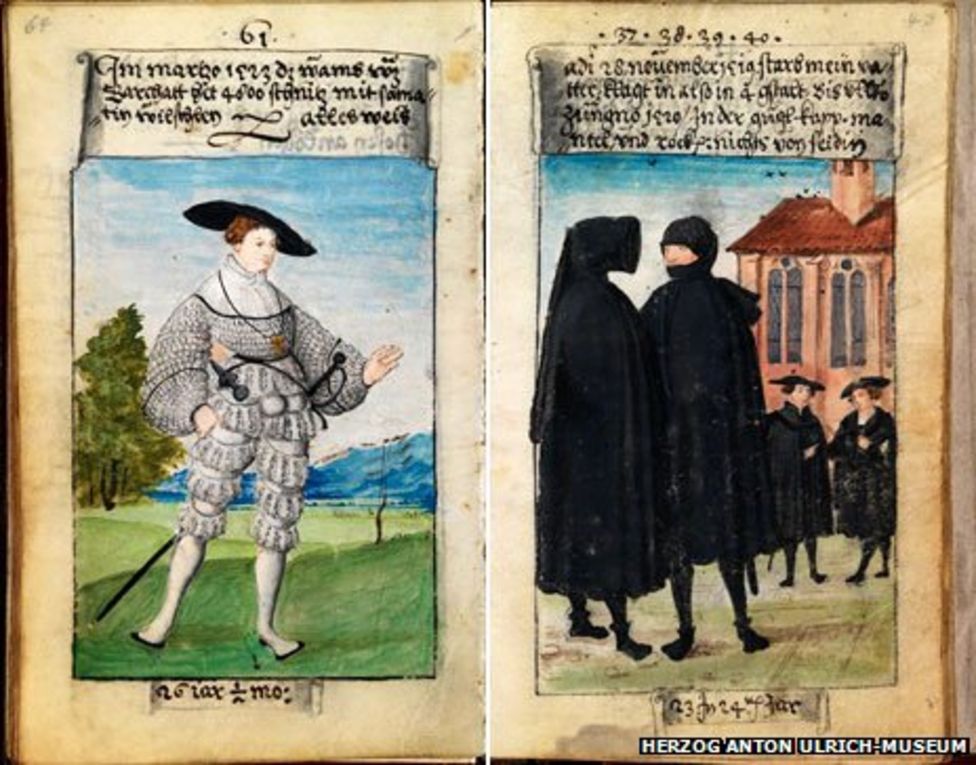 64
·61·
Im martzo 1523 dz wams von
barchatt het 4800 schnitz mit sama-
tin alles weis
26 iar ½ mo:
·37·38·39·40·
adi 28 november 1519 starb mein va-
tter, klagt in also in 4 gstalt. Bis
1520 / In der gugl-kapp. ma-
ntel und rock: nichts von seidin
23 In 24 Jar
HERZOG ANTON ULRICH-MUSEUM